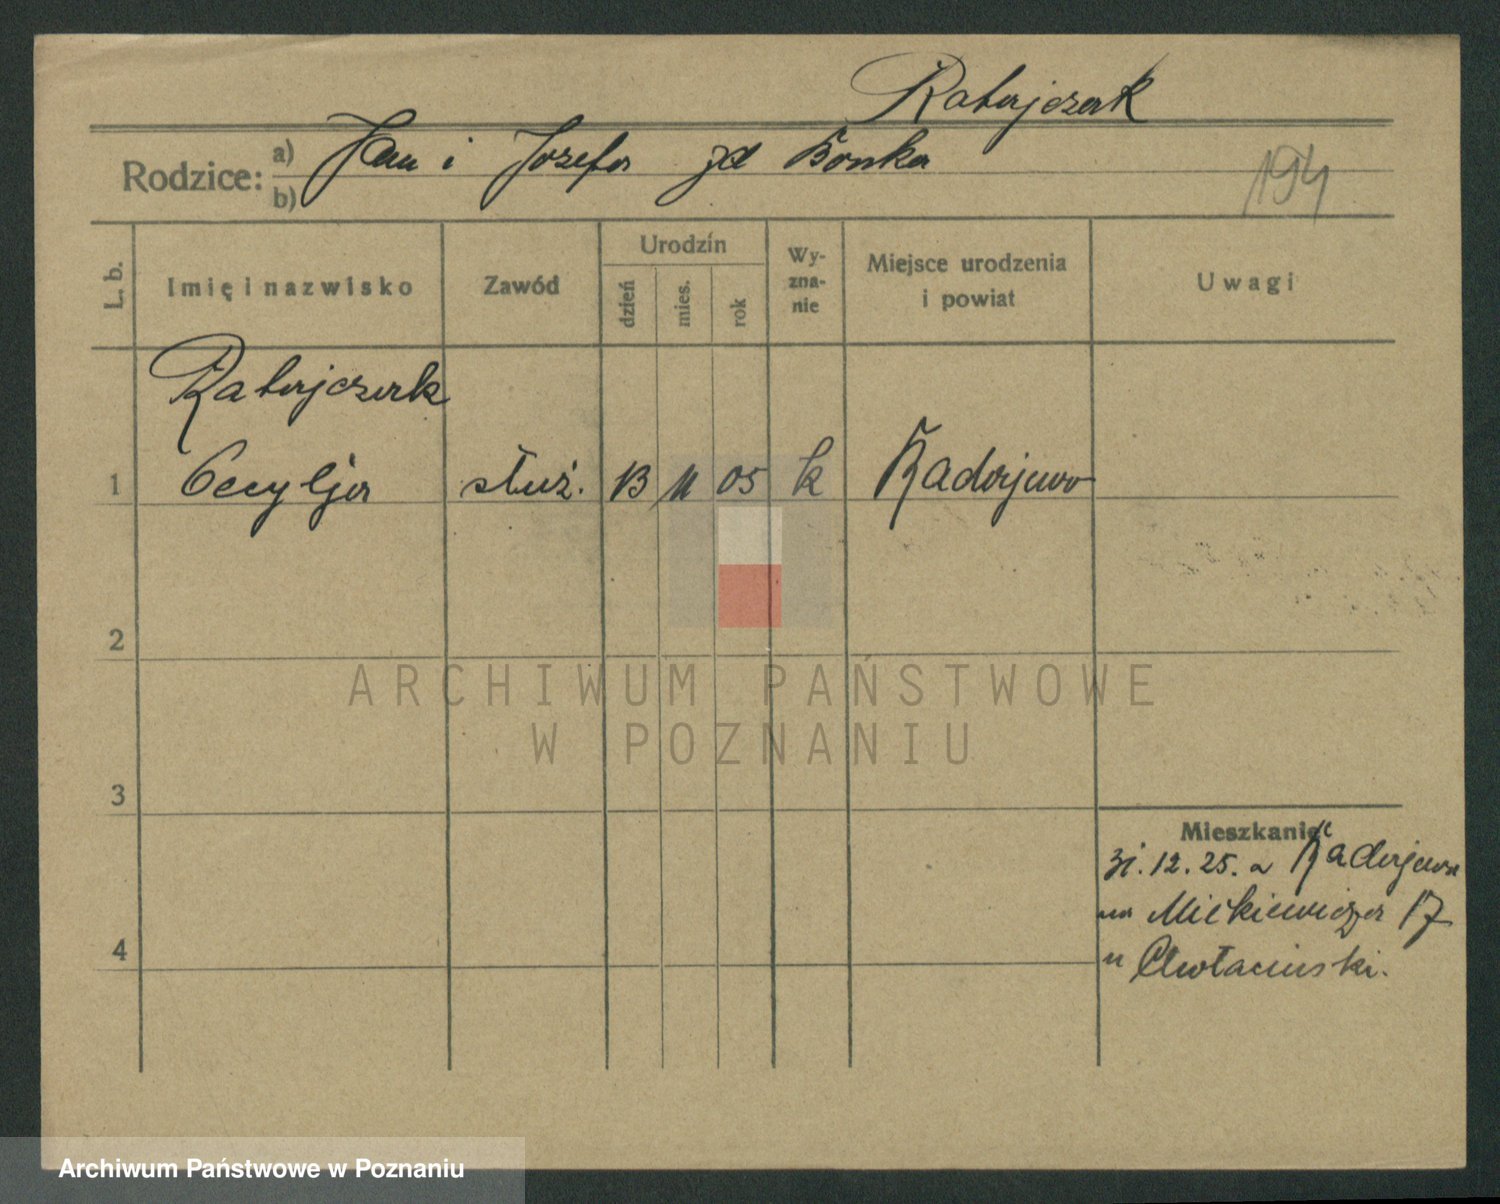 Ratajczak
Rodzice: a) Jan i Józefa zd Bonka
b)
194
L. b.
Imię i nazwisko
Zawód
Urodzin
dzień
mies.
rok
Wy-
zna-
nie
Miejsce urodzenia
i powiat
Uwagi
Ratajczak
1 Cecylja służ. 13 11 05 k Radojewo
2
3
4
Mieszkanie
31.12.25. z Radojewa
na Mickiewicza 17
u
ARCHIWUM PAŃSTWOWE
W POZNANIU
Archiwum Państwowe w Poznaniu